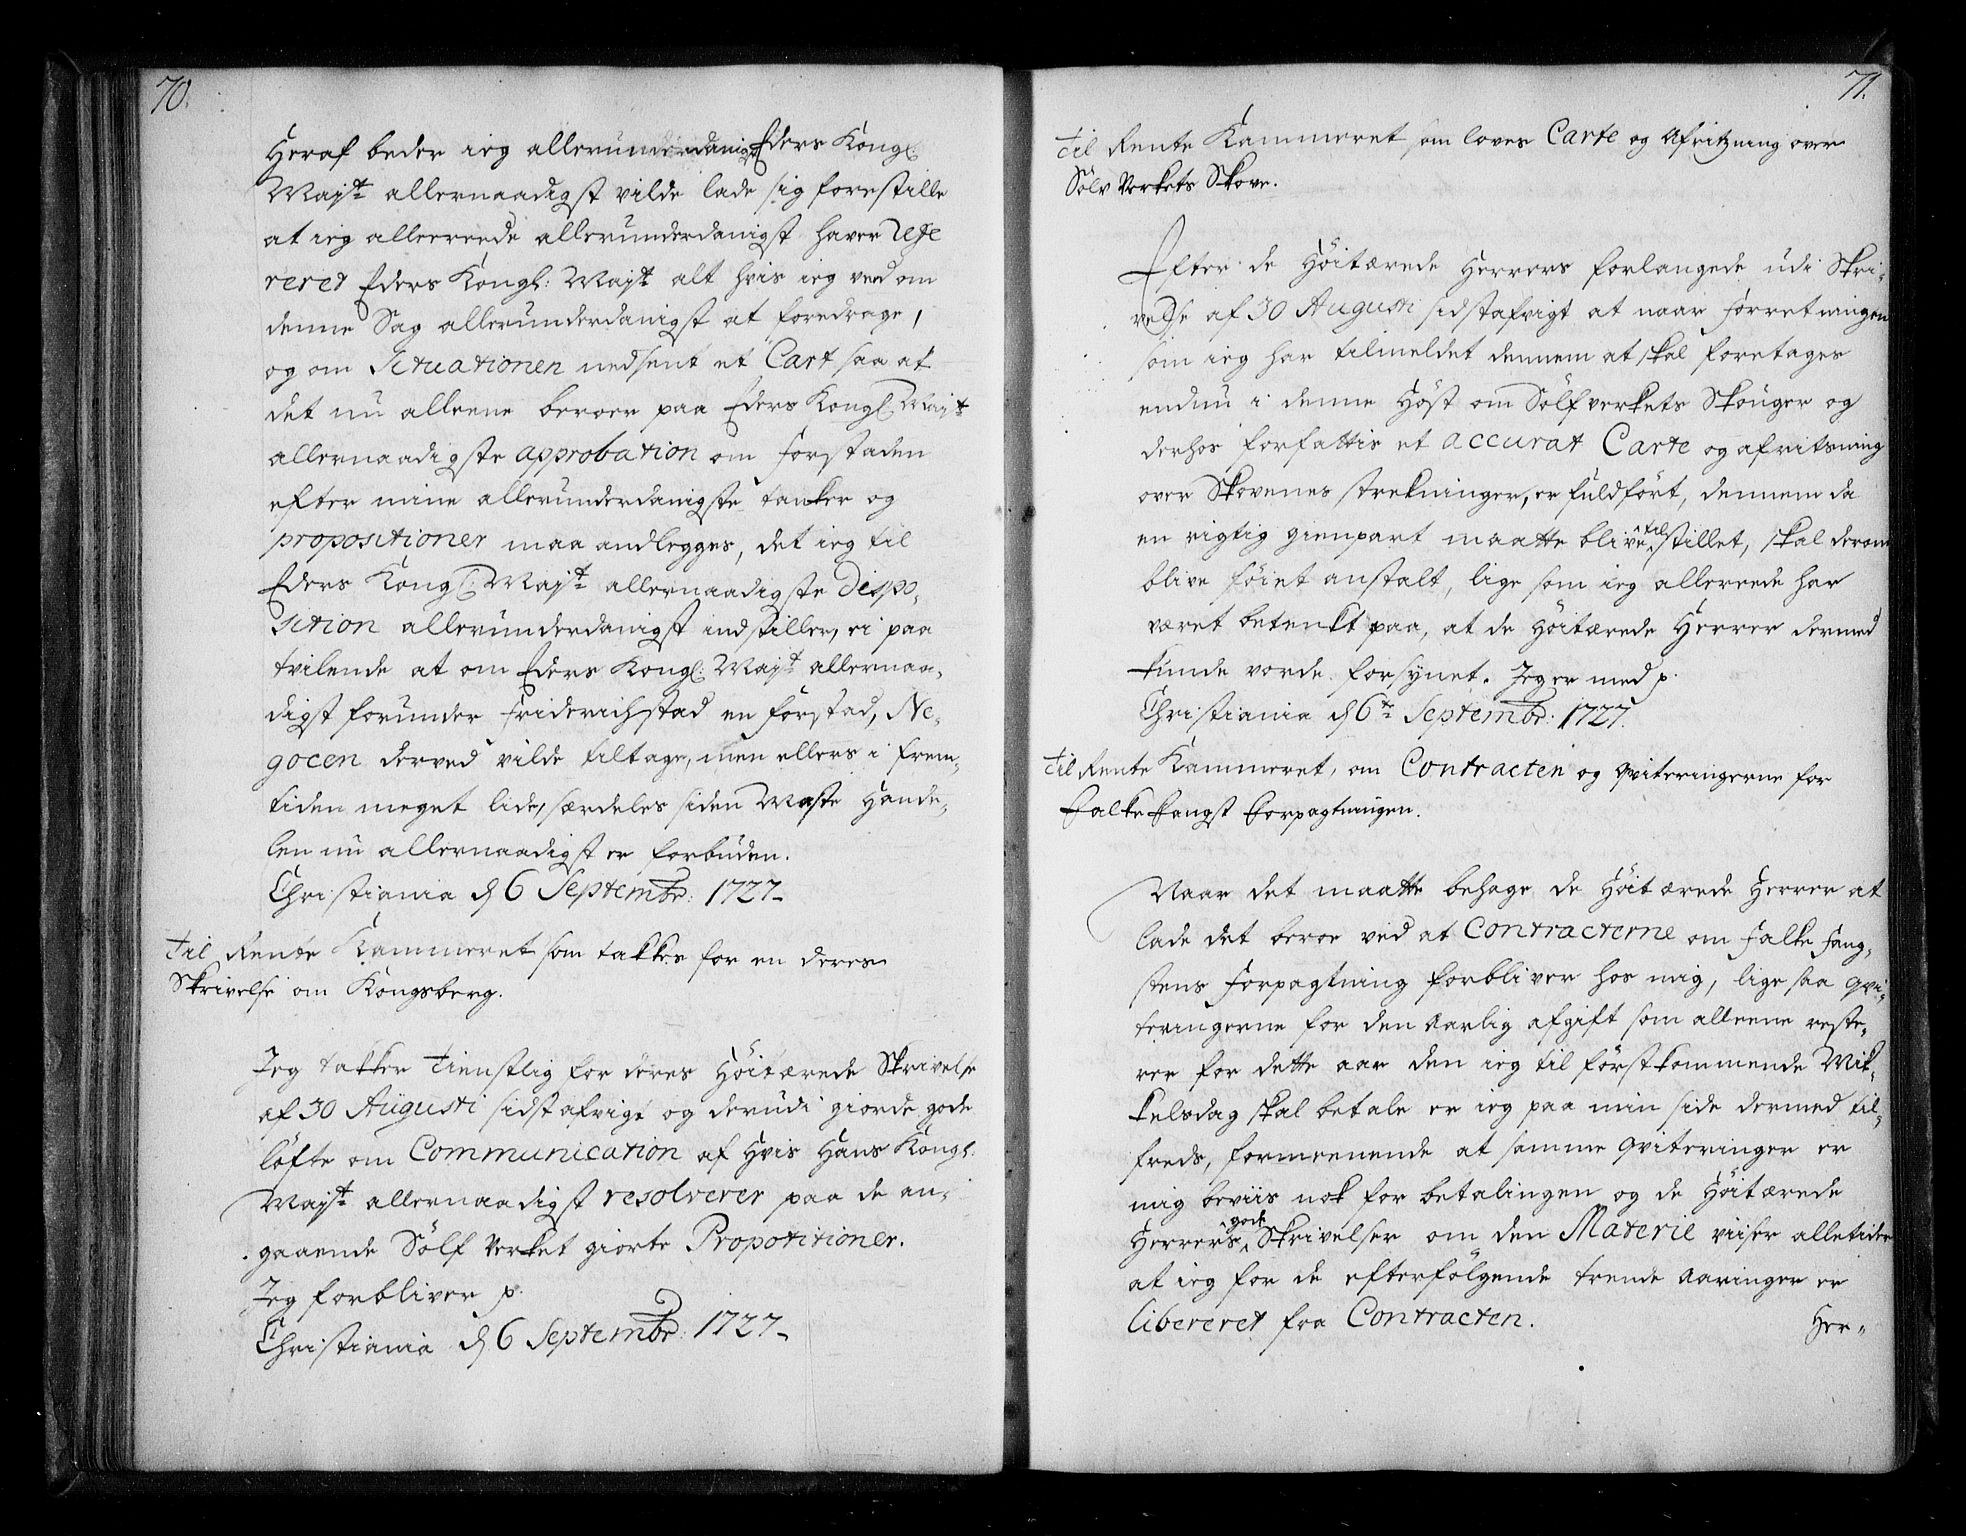 70.
Heraf beder ieg allerunderdanigst Eders Kongl:
Mayt allernaadigst vilde lade sig forestille
at ieg allereede allerunderdanigst haver refe
reret Eders Kongl: Mayt alt hvis ieg veed om
denne Sag allerunderdanigst at foredrage,
og om Situationen nedsent et Cart saa at
det nu alleene beroer paa Eders Kongl: Mayt
allernaadigste approbation om forstaden
efter mine allerunderdanigste tanker og
propositioner maa andlegges, det ieg til
Eders Kongl: Mayt allernaadigste Dispo-
sition allerunderdanigst indstiller, ei paa
tvilende at om Eders Kongl: Mayt allernaa-
digst forunder Friderichstad en forstad, Ne-
gocen derved vilde tiltage, men ellers i frem-
tiden meget lide, særdeles siden Maste Hande-
len nu allernaadigst er forbuden.
Christiania d 6 Septembr: 1727-
Til Rente Kammeret som takkes for en deres
Skrivelse om Kongsberg.
Jeg takker tienstlig for deres Höitærede Skrivelse
af 30 Augusti sidst afvigt og derudi giorde gode
löfte om Communication af hvis Hans Kongl:
Mayt allernaadigst resolverer paa de an-
gaaende Sölf Verket giorte Propotitioner.
Jeg forbliver p.
Christiania d 6 Septembr: 1727-
71.
Til Rente Kammeret som loves Carte og Afritzning over
Sölv Verkets Skove.
Efter de Höitærede Herrers forlangede udi Skri-
velse af 30 Augusti sidstafvigt at naar forretningen
som ieg har tilmeldet dennem at skal foretages
endnu i denne Höst om Sölfverkets Skouger og
derhos forfattis et accurat Carte og afritsning
over Skovenes strekninger, er fuldfört, dennem da
en rigtig gienpart maatte blive ^til stillet, skal derom
blive föiet anstalt, lige som ieg allereede har
været betenkt paa, at de Höitærede Herrer dermed
kunde vorde forsynet. Jeg er med p.
Christiania d 6te Septembr: 1727.
Til Rente Kammeret, om Contracten og qviteringerne for
Falke Fangst Forpagtningen.
Naar det maatte behage de Höitærede Herrer at
lade det beroe ved at Contracterne om Falke Fang-
stens Forpagtning forbliver hos mig, lige saa qvi-
teringerne for den Aarlig afgift som alleene reste-
rer for dette aar den ieg til förstkommende Mik-
kelsdag skal betale er ieg paa min side dermed til-
freds, formeenende at samme qviteringer er
mig beviis nok for betalingen og de Höitærede
Herrers ^gode Skrivelser om den Materie viiser alletider
at ieg for de efterfölgende trende Aaringer er
libereret fra Contracten.
Her-